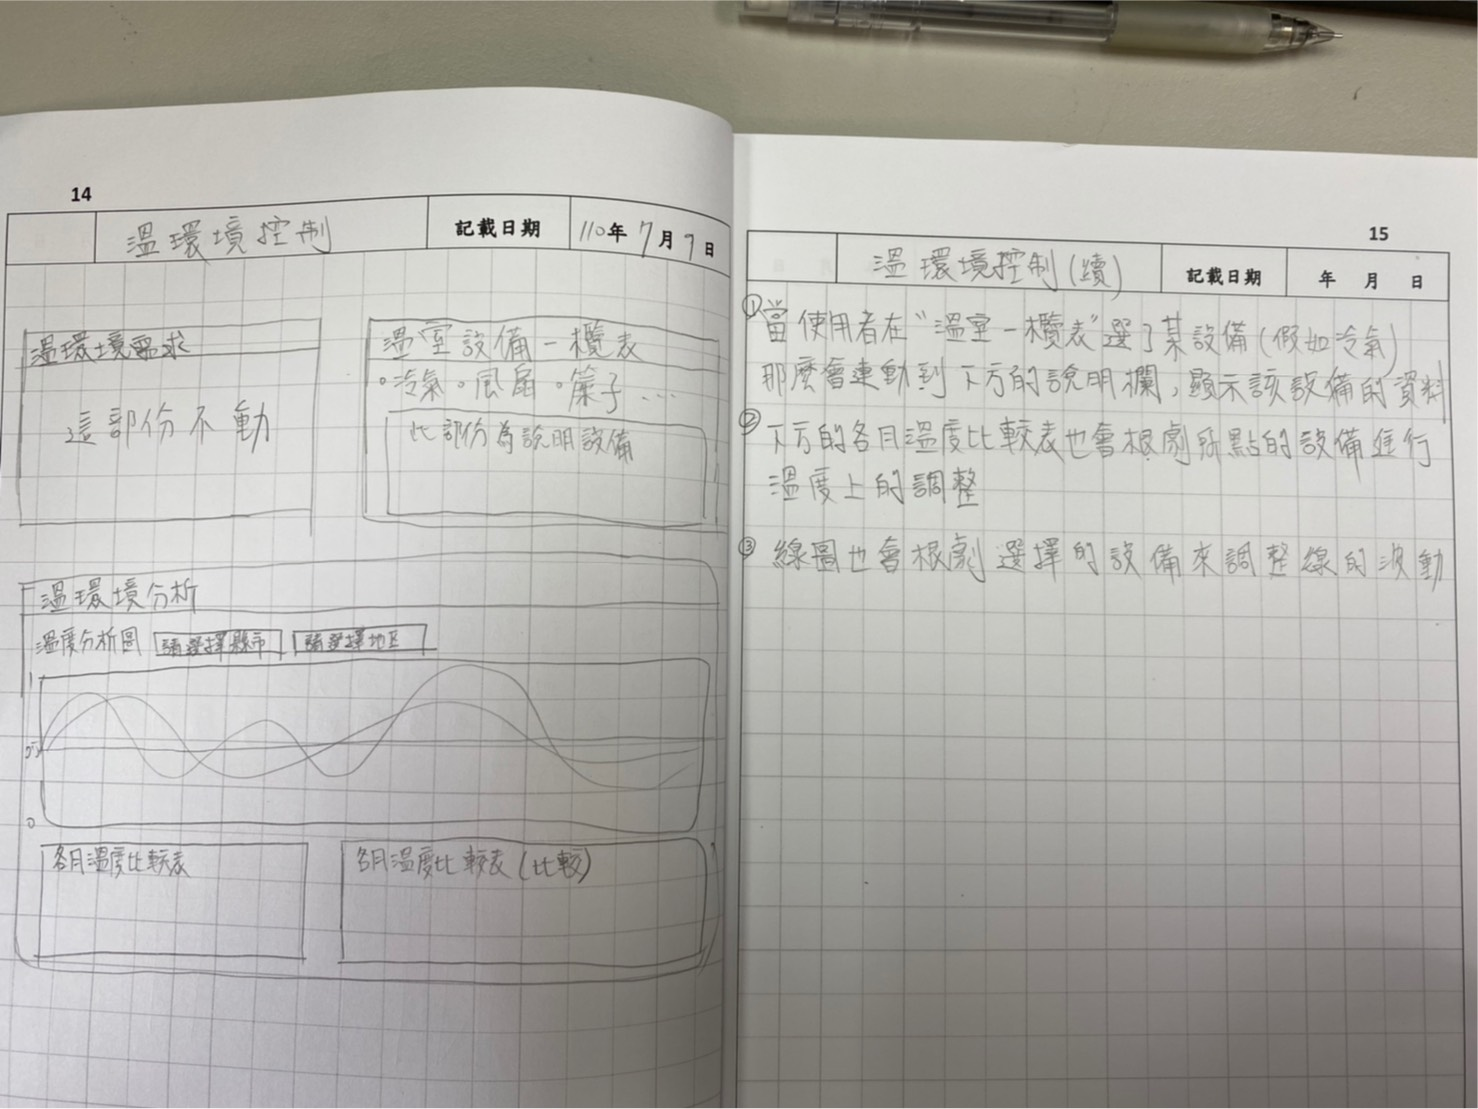 14
溫環境控制 記載日期 110年7月9日
溫環境需求
這部份不動
溫室設備一欖表
。冷氣。風扇。簾子...
此部份為說明設備
溫環境分析
溫度分析圖 請選擇縣市 請選擇地區
0
各月溫度比較表
各月溫度比較表(比較)
15
溫環境控制(續) 記載日期 年 月 日
①當使用者在"溫室一欖表"選了某設備(假如冷氣)
那麼會連動到下方的說明欄,顯示該設備的資料
②下方的各月溫度比較表也會根劇所點的設備進行
溫度上的調整
③線圖也會根劇選擇的設備來調整線的波動